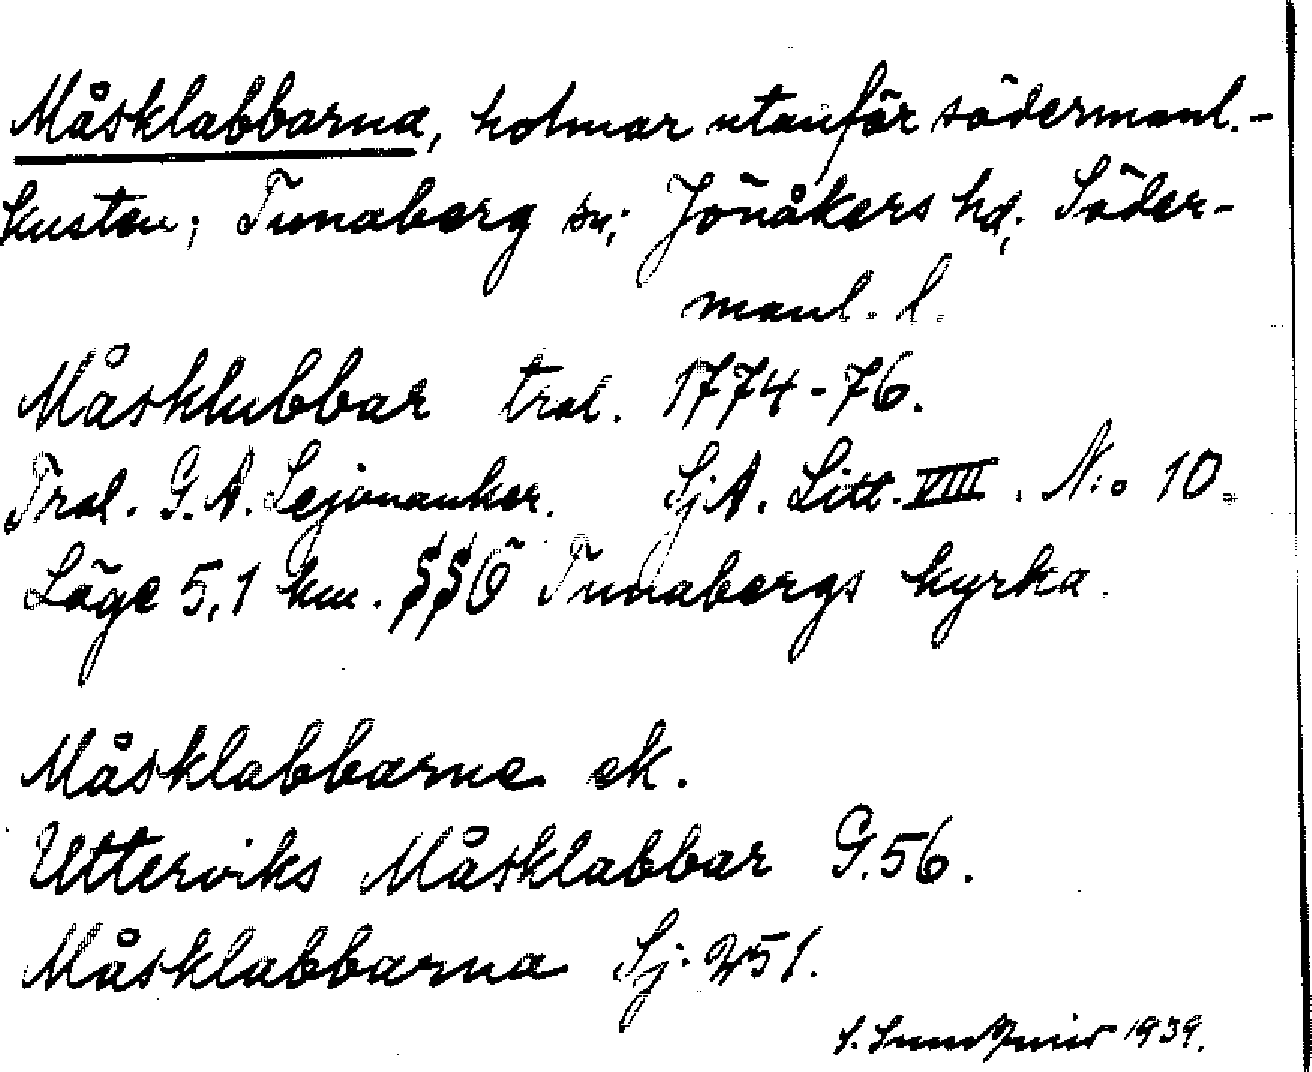 Måsklabbarna, holmar utanför södermanl.-
kusten; Tunaberg sn; Jönåkers hd; Söder-
manl. l.
Måsklubbar tral. 1774-76.
Tral. G. A. Lejonanker. SjA. Litt. VIII. N:o 10.
Läge 5,1 km. SSÖ Tunabergs kyrka.
Måsklabbarne ek.
Utterviks Måsklabbar G. 56.
Måsklabbarna Sj. 251.
1939.